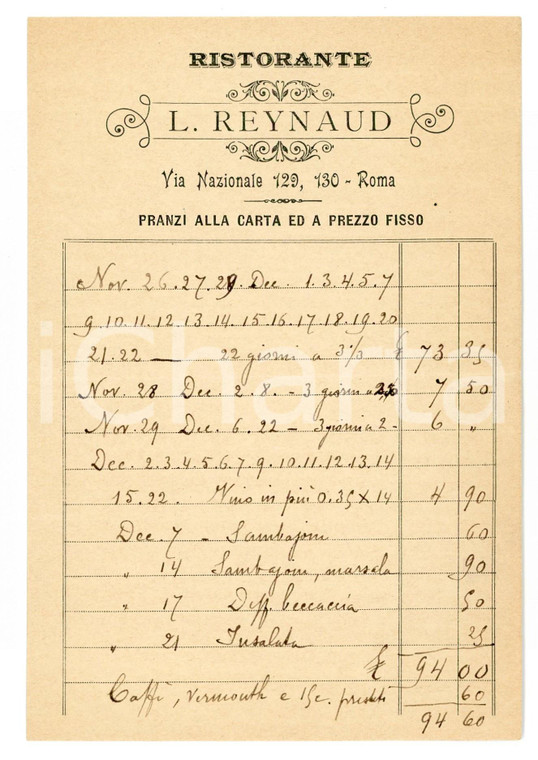 RISTORANTE
L. REYNAUD
Via Nazionale 129, 130 - Roma
PRANZI ALLA CARTA ED A PREZZO FISSO
Nov. 26.27.29. Dec. 1.3.4.5.7
9.10.11.12.13.14.15.16.17.18.19.20
21.22 — 22 giorni a 3⅓ £ 73 35
Nov. 28 Dec. 2.8. - 3 giorni a 7 50
Nov. 29 Dec. 6.22 - 3 giorni a 2 - 6 "
Dec. 2.3.4.5.6.7.9.10.11.12.13.14
15.22. Vino in più 0.35 x 14 4 90
Dec. 7 - Sambajon 60
" 14 Sambajon, marsala 90
" 17 Diff. beccaccia 50
" 21 Insalata 25
£ 94 00
Caffè, Vermouth e 15c. 60
94 60
iCharta